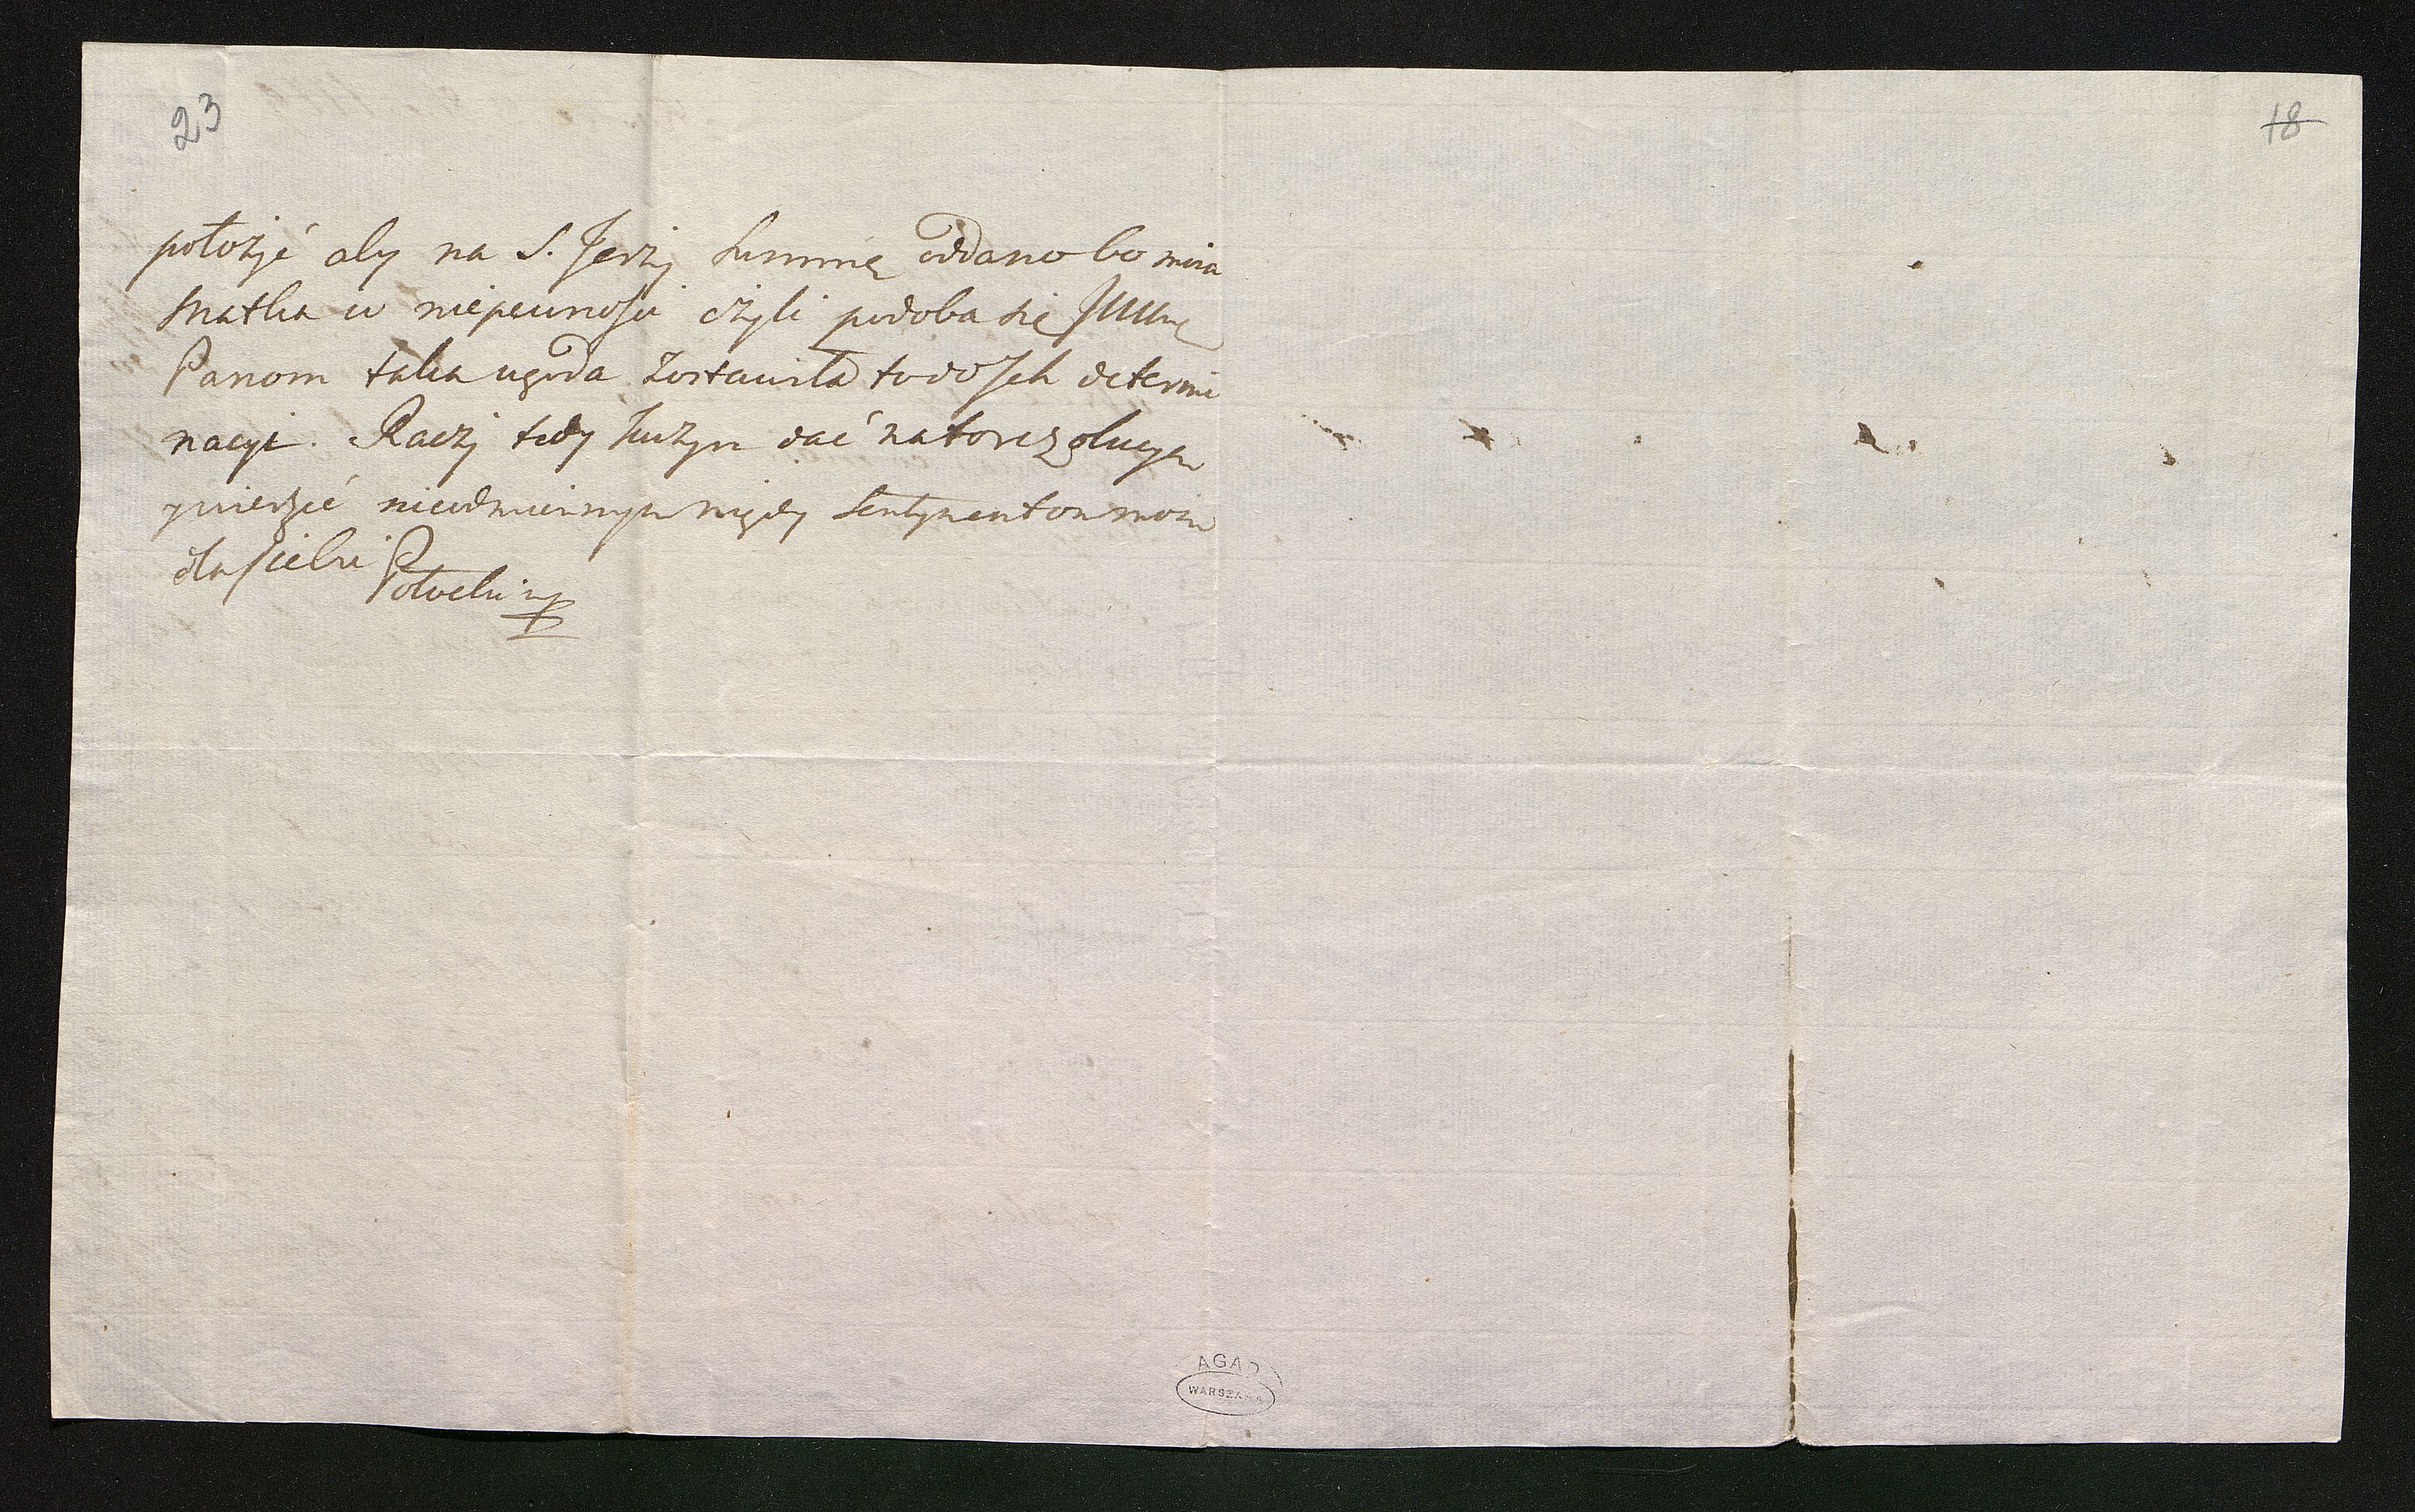 23
18
położyć aby na S. Jerzy Summę oddano bo moia
Matka w niepewności czyli podoba się
Panom taka ugoda zostawiła to do Jch determi
nacyi. Raczy tedy dać na to rezolucyą
y wierzić nieodmiennym nigdy Sentymentom moim
dla siebie
Potocki
AGAD
WARSZAWA